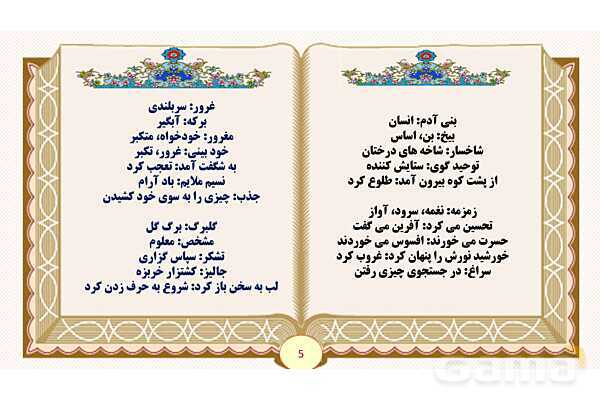 بنی آدم: انسان
بیخ: بن، اساس
شاخسار: شاخه های درختان
توحید گوی: ستایش کننده
از پشت کوه بیرون آمد: طلوع کرد
زمزمه: نغمه، سرود، آواز
تحسین می کرد: آفرین می گفت
حسرت می خورند: افسوس می خوردند
خورشید نورش را پنهان کرد: غروب کرد
سراغ: در جستجوی چیزی رفتن
غرور: سربلندی
برکه: آبگیر
مغرور: خودخواه، متکبر
خود بینی: غرور، تکبر
به شگفت آمد: تعجب کرد
نسیم ملایم: باد آرام
جذب: چیزی را به سوی خود کشیدن
گلبرگ: برگ گل
مشخص: معلوم
تشکر: سپاس گزاری
جالیز: کشتزار خربزه
لب به سخن باز کرد: شروع به حرف زدن کرد
5
Gama